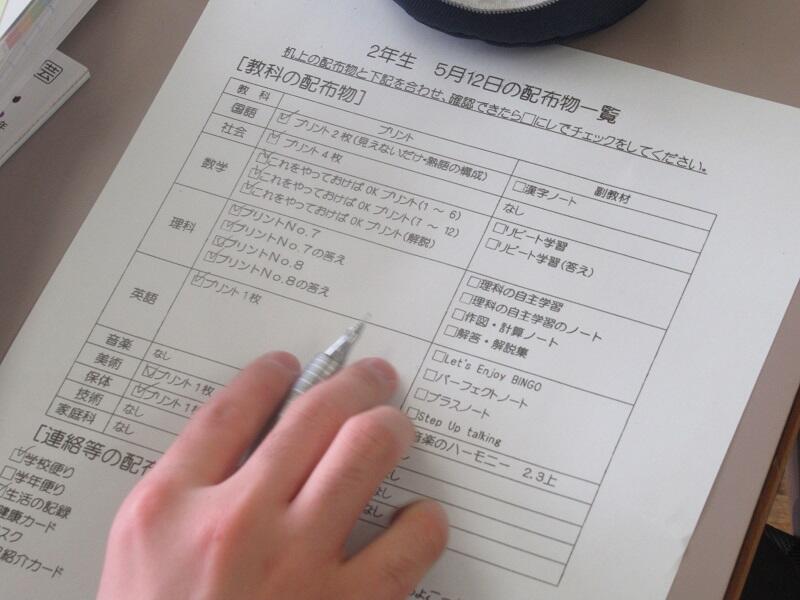 2年生 5月12日の配布物一覧
机上の配布物と下記を合わせ、確認できたら□にレでチェックをしてください。
[教科の配布物]
教 科 プリント 副教材
国語 ☑プリント2枚(見えないだけ・熟語の構成) □漢字ノート
社会 ☑プリント4枚 なし
数学 ☑これをやっておけばOKプリント(1～6) □リピート学習
☑これをやっておけばOKプリント(7～12) □リピート学習(答え)
☑これをやっておけばOKプリント(解説)
理科 ☑プリントNo.7 □理科の自主学習
☑プリントNo.7の答え □理科の自主学習のノート
☑プリントNo.8 □作図・計算ノート
☑プリントNo.8の答え □解答・解説集
英語 ☑プリント1枚 □Let's Enjoy BINGO
□パーフェクトノート
□プラスノート
□Step Up talking
音楽 なし 音楽のハーモニー 2.3上
美術 ☑プリント1枚
保体 ☑プリント1
技術 なし なし
家庭科 なし なし
[連絡等の配布
☑学校便り
□学年便り
生活の記録
健康カード
スク
紹介カード
芸
年